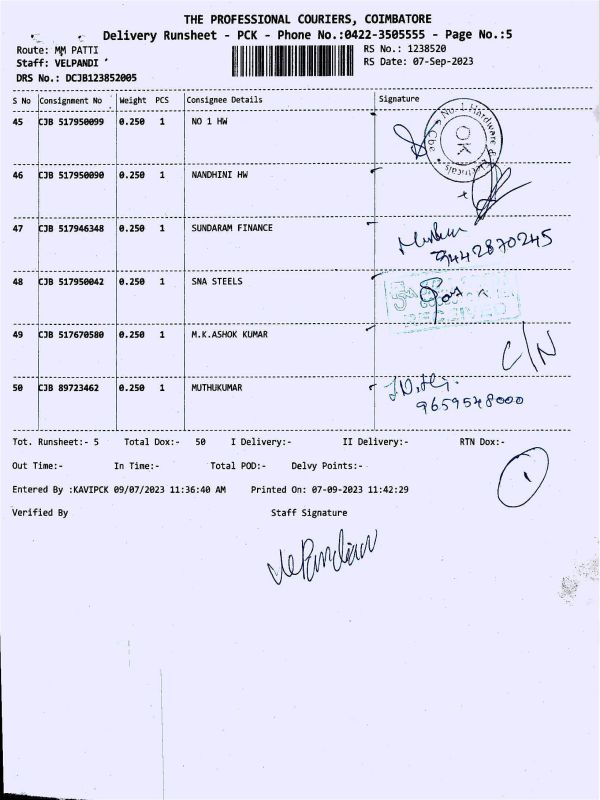 THE PROFESSIONAL COURIERS, COIMBATORE
Delivery Runsheet - PCK - Phone No.:0422-3505555 - Page No.:5
Route: MM PATTI RS No.: 1238520
Staff: VELPANDI RS Date: 07-Sep-2023
DRS No.: DCJB123852005
S No Consignment No Weight PCS Consignee Details Signature
45 CJB 517950099 0.250 1 NO 1 HW
No.1 Hardware & Electricals Cbe
OK
46 CJB 517950090 0.250 1 NANDHINI HW
47 CJB 517946348 0.250 1 SUNDARAM FINANCE
9442870245
48 CJB 517950042 0.250 1 SNA STEELS
RECEIVED
49 CJB 517670580 0.250 1 M.K.ASHOK KUMAR C/N
50 CJB 89723462 0.250 1 MUTHUKUMAR
9659548000
Tot. Runsheet:- 5 Total Dox:- 50 I Delivery:- II Delivery:- RTN Dox:-
Out Time:- In Time:- Total POD:- Delvy Points:- 1
Entered By :KAVIPCK 09/07/2023 11:36:40 AM Printed On: 07-09-2023 11:42:29
Verified By Staff Signature
VelPandian